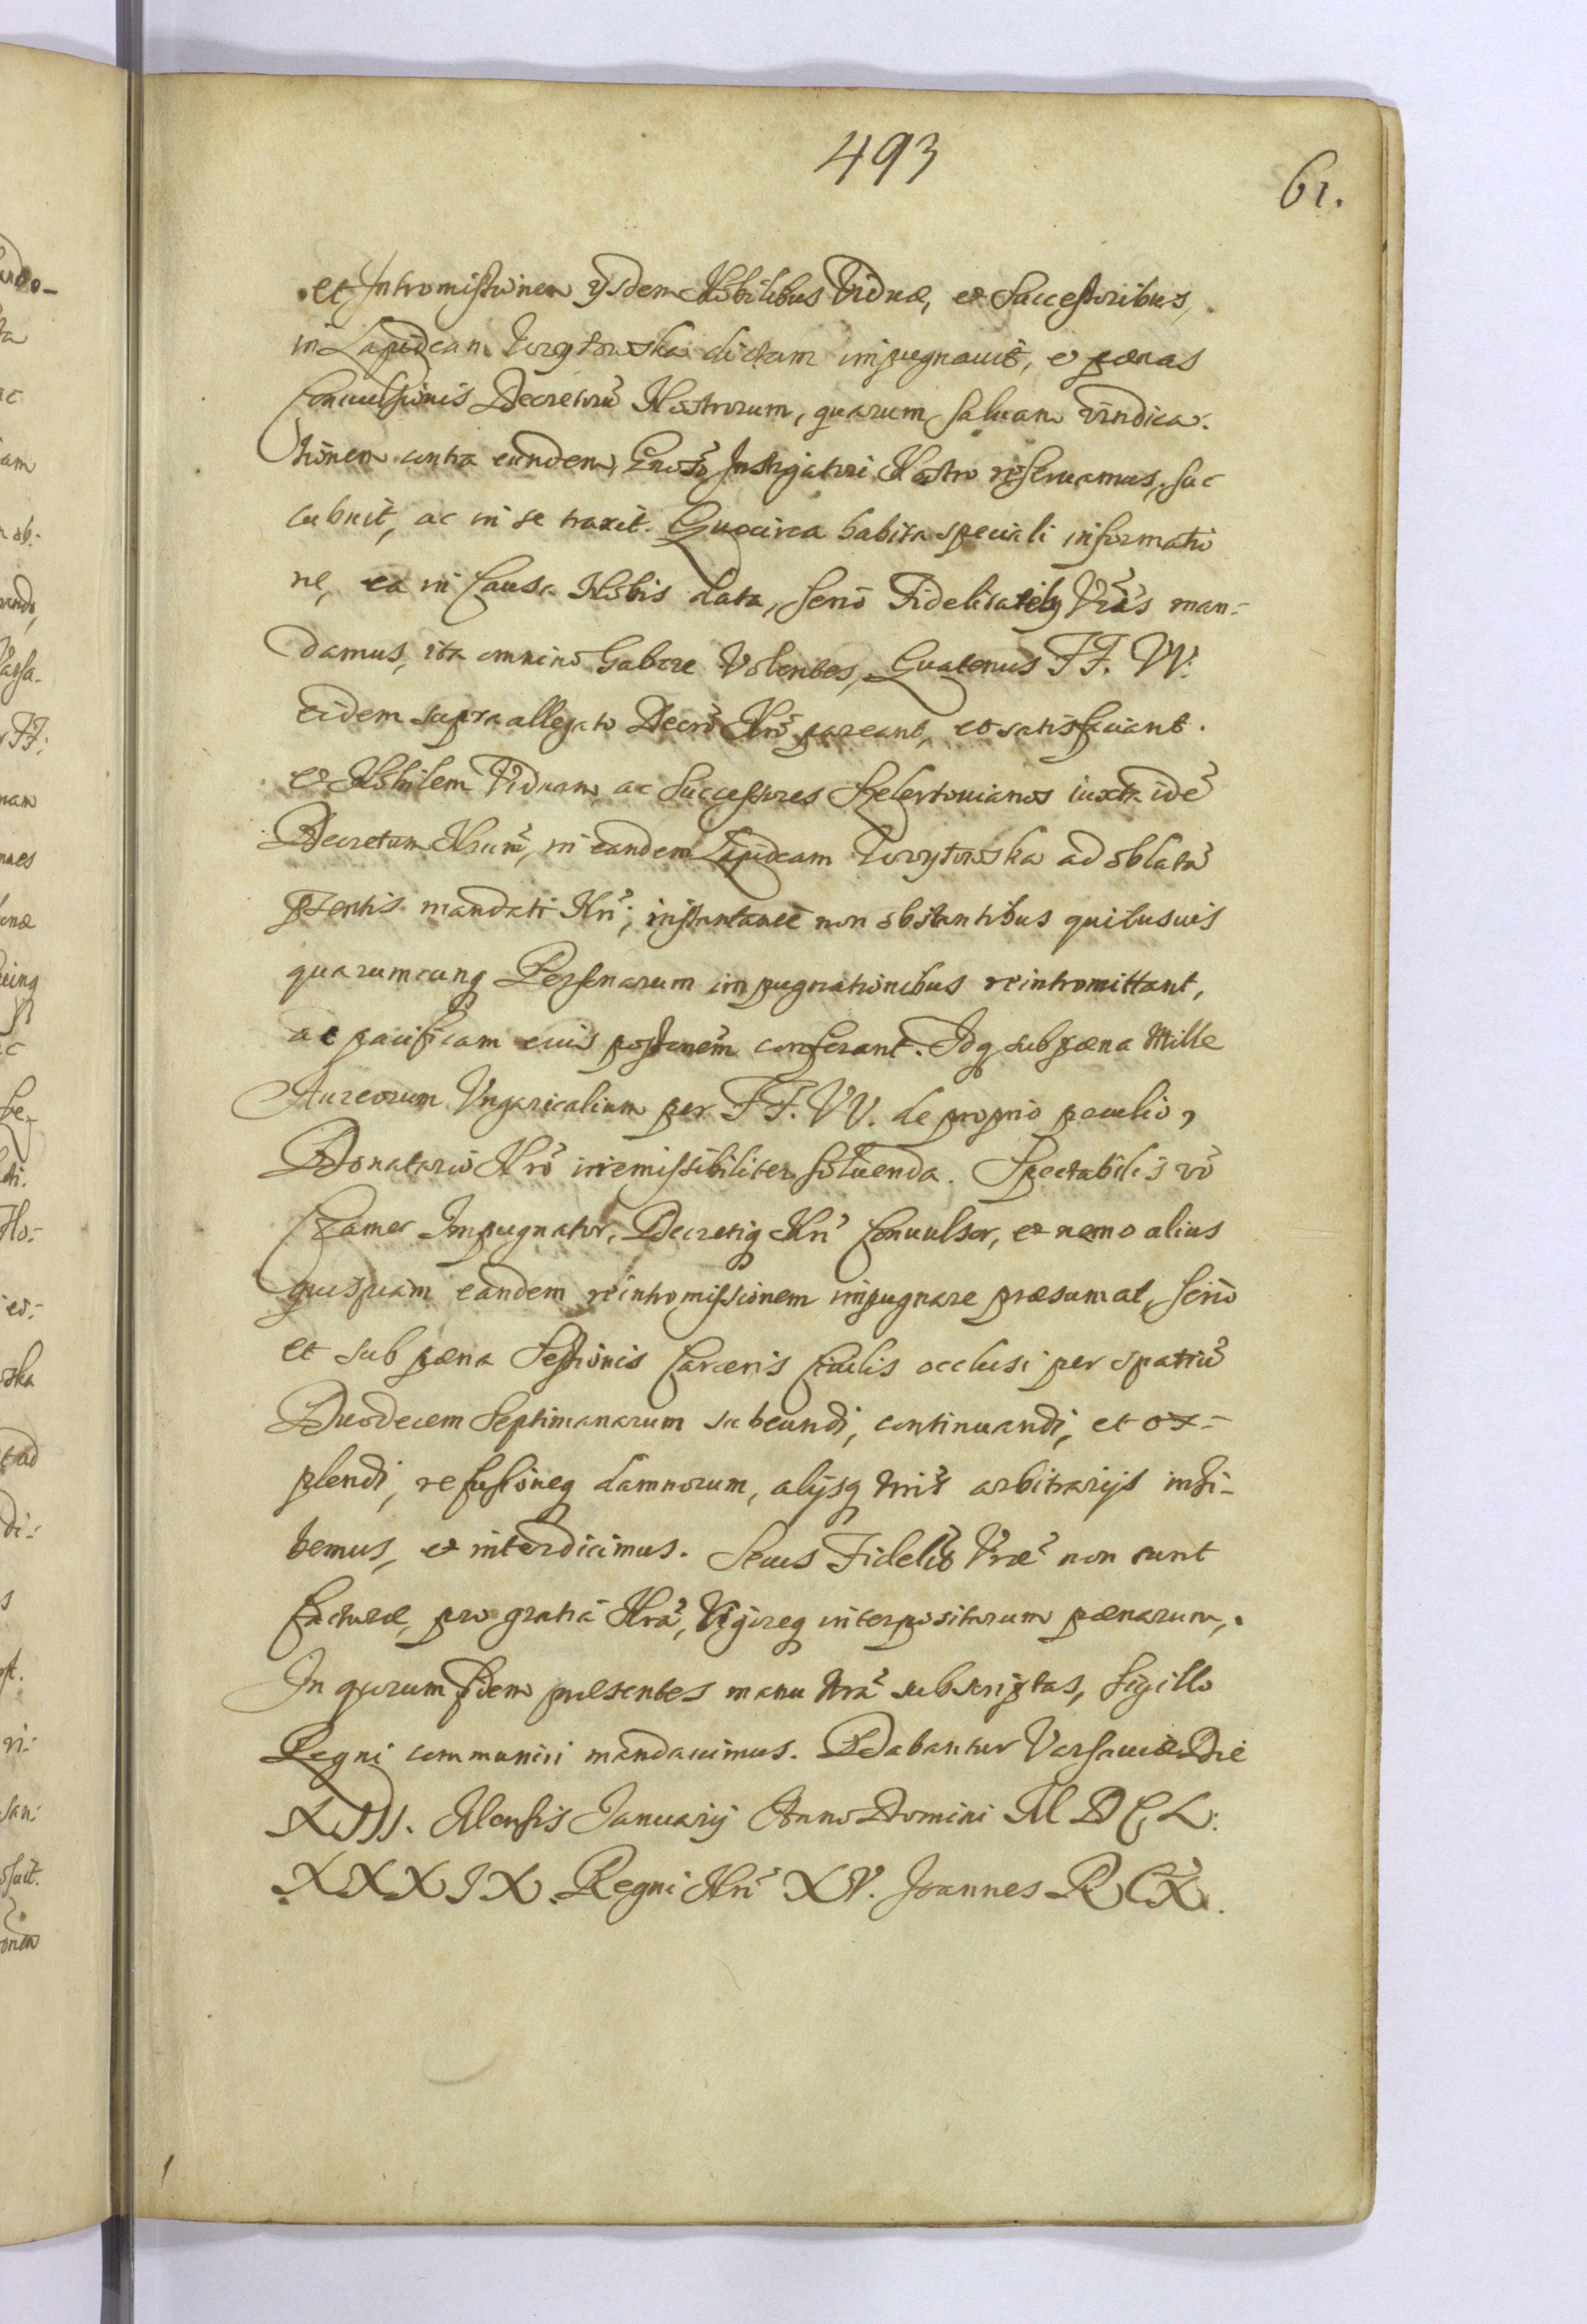 493
61.
et Intromissionem ijsdem Nobilibus Viduæ, et Successoribus,
in Lapideam Korytowska dictam impugnauit, et pœnas
Conuulsionis Decretorũ Nostrorum, quarum saluam vindica-
tionem contra eundem, Instigatori Nostro reseruamus, suc
cubuit, ac in se traxit. Quocirca habita speciali informatio
ne, ea in Causa Nobis data, serio Fidelitatibq Vr̃is man-
damus, ita omnino habere Volentes, Quatenus FF. VV.
eidem supra allegato Decrõ Nrõ pareant, et satisfaciant.
et Nobilem Viduam, ac Successores Szelertouianos iuxta idẽ
Decretum Nrũm, in eandem Lapideam Korytowska ad oblatã
p̃sentis mandati Nrĩ, instantanee non obstantibus quibusuis
quarumcunq Personarum impugnationibus reintromittant,
ac pacificam eius possionẽm conferant. Idq sub pœna Mille
Aureorum Vngaricalium per FF. VV. de proprio peculio,
Donatario Nrõ irremissibiliter soluenda. Spectabilis võ
Czamer Impugnator, Decretiq Nrĩ Conuulsor, et nemo alius
quispiam eandem reintromissionem impugnare præsumat, serio
et sub pœna Sessionis Carceris Ciuilis occlusi per spatiũ
Duodecem Septimanarum subeundi, continuandi, et ex-
plendi, refusioneq damnorum, alijsq nrĩs arbitrarijs inhi-
bemus, et interdicimus. Secus Fidelit̃ Vræ̃ non sunt
facturæ, pro gratiã Nrã, Vigoreq interpositarum pœnarum.
In quorum fidem præsentes manu Nrã subscriptas, sigillo
Regni communiri mandauimus. Dabantur Varsauiæ Die
XIII. Mensis Januarij Anno Domini M D C L:
XXXIX. Regni Nrĩ XV. Joannes REX.